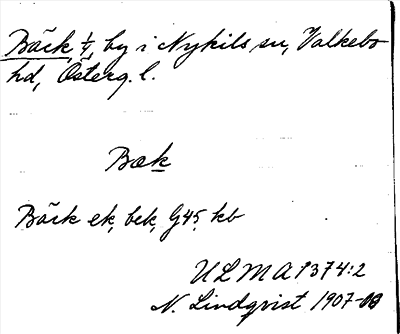 Bäck 1/4, by i Nykils sn, Valkebo
hd, Österg. l.
Bæk
Bäck ek, bek, G45, kb
ULMA 1374:2
N. Lindqvist 1907-08